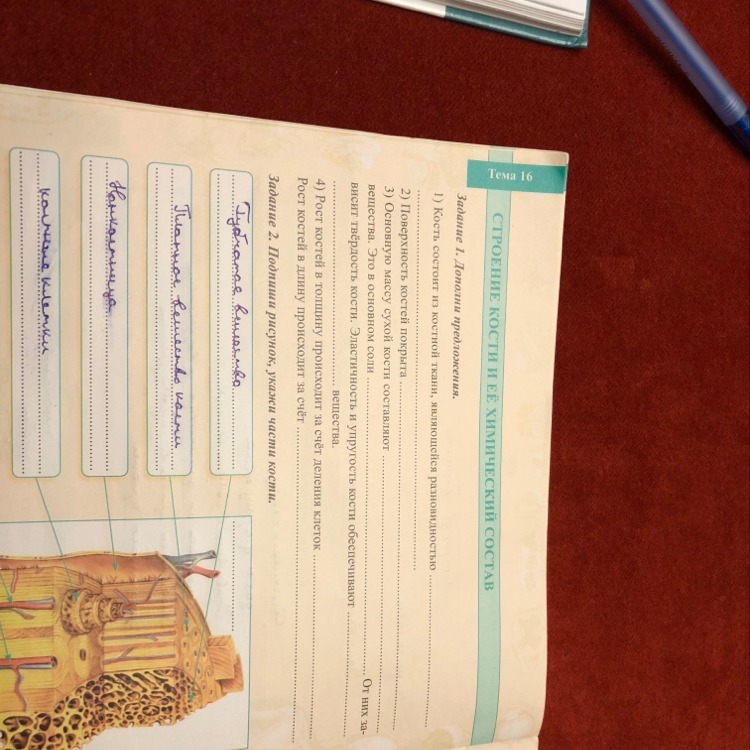 Тема 16
СТРОЕНИЕ КОСТИ И ЕЁ ХИМИЧЕСКИЙ СОСТАВ
Задание 1. Дополни предложения.
1) Кость состоит из костной ткани, являющейся разновидностью
2) Поверхность костей покрыта
3) Основную массу сухой кости составляют
вещества. Это в основном соли От них за-
висит твёрдость кости. Эластичность и упругость кости обеспечивают
вещества.
4) Рост костей в толщину происходит за счёт деления клеток
Рост костей в длину происходит за счёт
Задание 2. Подпиши рисунок, укажи части кости.
Губчатое вещество
Плотное вещество кости
Надкостница
костные клетки